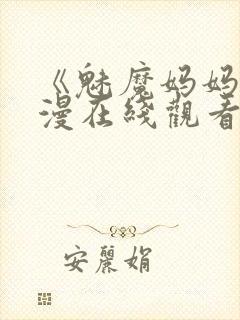 《魅魔妈妈
漫在线觀看
安麗娟